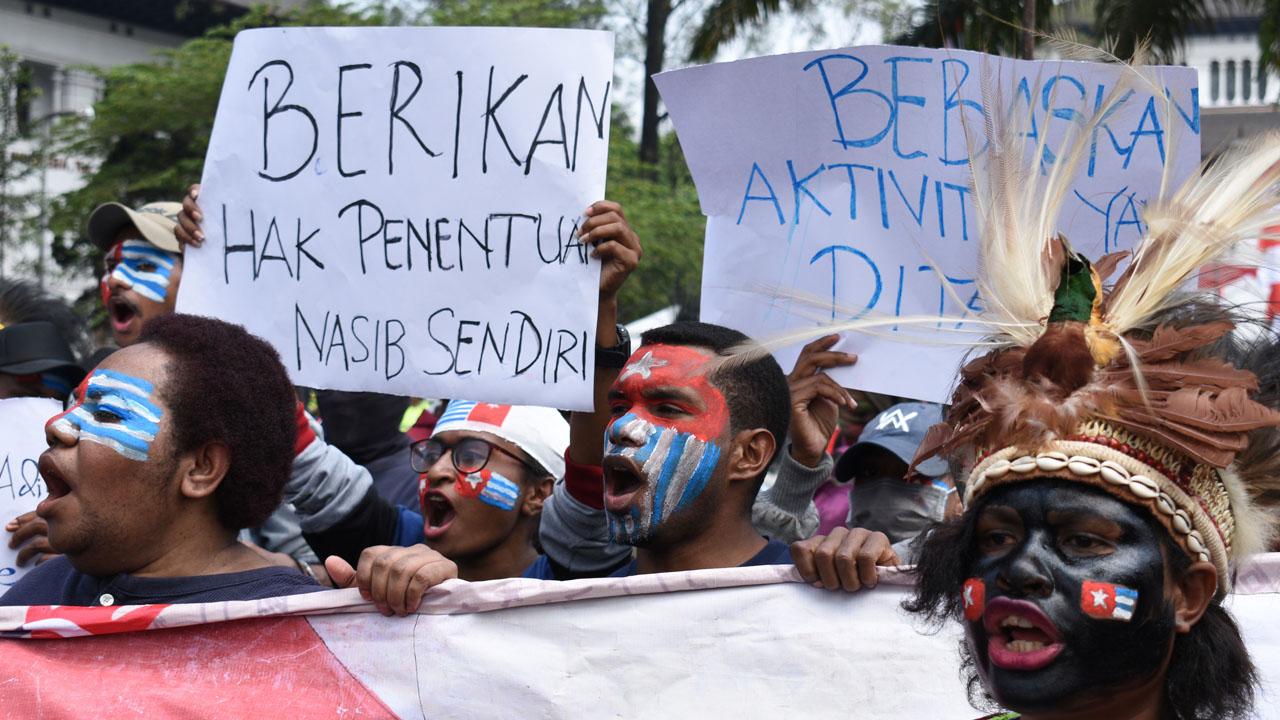 BERIKAN
HAK PENENTUAN
NASIB SENDIRI
BEBASKAN
AKTIVIT YA
DITA